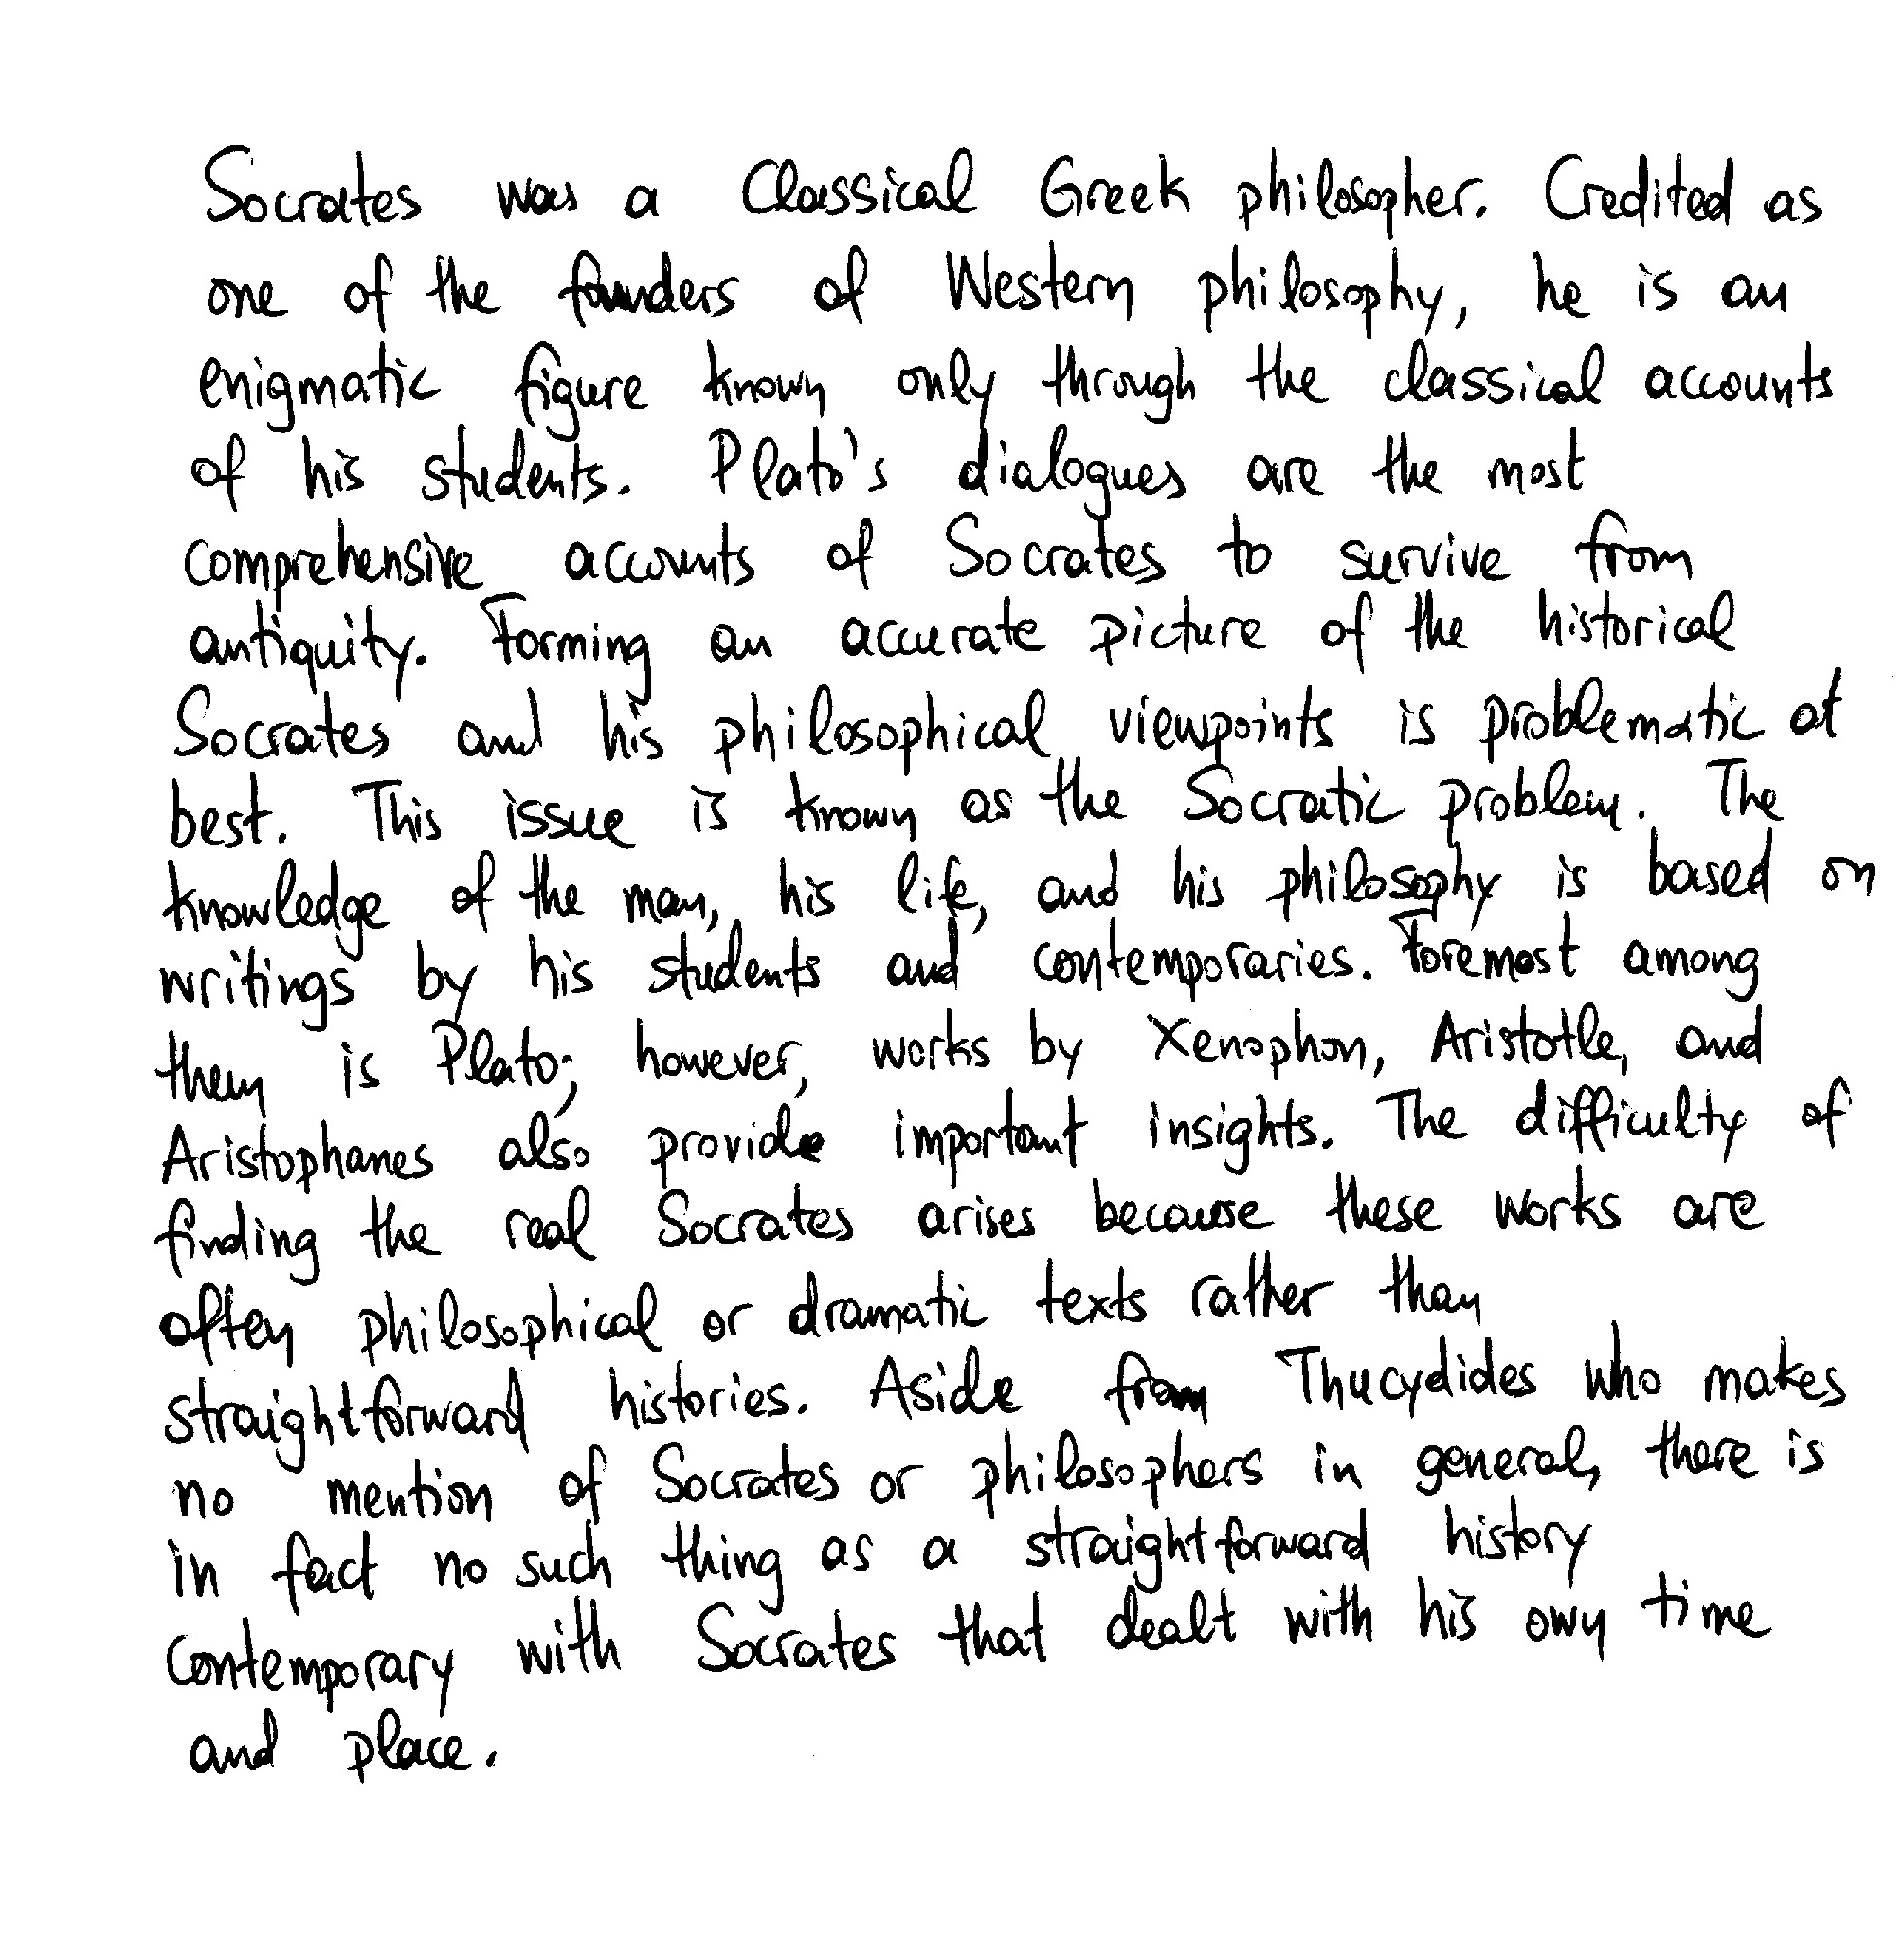 Socrates was a Classical Greek philosopher. Credited as
one of the founders of Western philosophy, he is an
enigmatic figure known only through the classical accounts
of his students. Plato's dialogues are the most
comprehensive accounts of Socrates to survive from
antiquity. Forming an accurate picture of the historical
Socrates and his philosophical viewpoints is problematic at
best. This issue is known as the Socratic problem. The
knowledge of the man, his life, and his philosophy is based on
writings by his students and contemporaries. Foremost among
them is Plato; however, works by Xenophon, Aristotle, and
Aristophanes also provide important insights. The difficulty of
finding the real Socrates arises because these works are
often philosophical or dramatic texts rather than
straightforward histories. Aside from Thucydides who makes
no mention of Socrates or philosophers in general, there is
in fact no such thing as a straightforward history
contemporary with Socrates that dealt with his own time
and place.